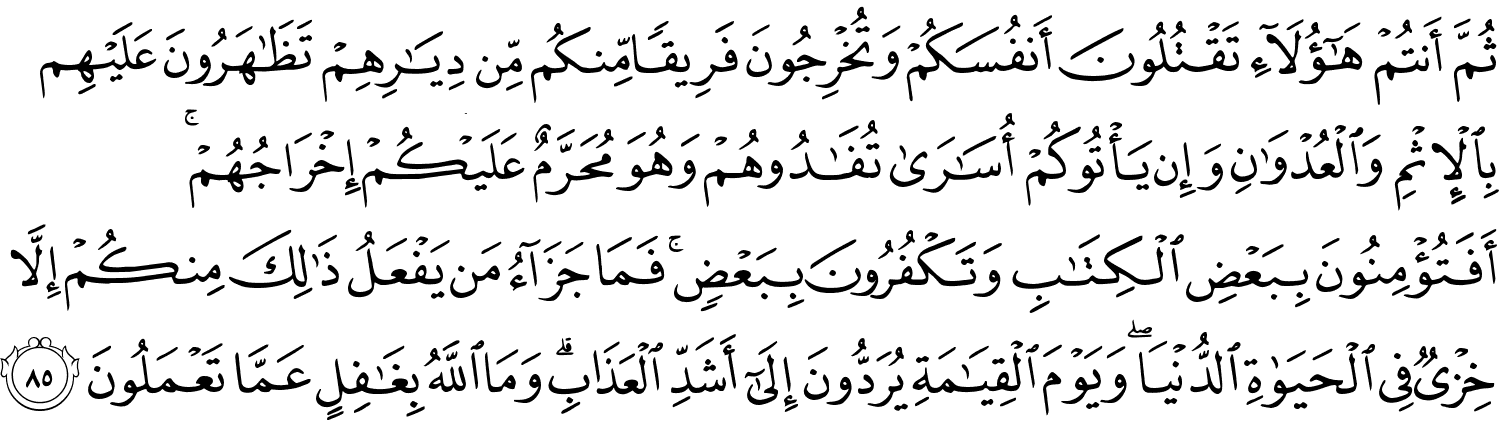 ثُمَّ أَنتُمْ هَٰٓؤُلَآءِ تَقْتُلُونَ أَنفُسَكُمْ وَتُخْرِجُونَ فَرِيقًا مِّنكُم مِّن دِيَٰرِهِمْ تَظَٰهَرُونَ عَلَيْهِم
بِٱلْإِثْمِ وَٱلْعُدْوَٰنِ وَإِن يَأْتُوكُمْ أُسَٰرَىٰ تُفَٰدُوهُمْ وَهُوَ مُحَرَّمٌ عَلَيْكُمْ إِخْرَاجُهُمْ ۚ
أَفَتُؤْمِنُونَ بِبَعْضِ ٱلْكِتَٰبِ وَتَكْفُرُونَ بِبَعْضٍ ۚ فَمَا جَزَآءُ مَن يَفْعَلُ ذَٰلِكَ مِنكُمْ إِلَّا
خِزْىٌ فِى ٱلْحَيَوٰةِ ٱلدُّنْيَا ۖ وَيَوْمَ ٱلْقِيَٰمَةِ يُرَدُّونَ إِلَىٰٓ أَشَدِّ ٱلْعَذَابِ ۗ وَمَا ٱللَّهُ بِغَٰفِلٍ عَمَّا تَعْمَلُونَ ٨٥